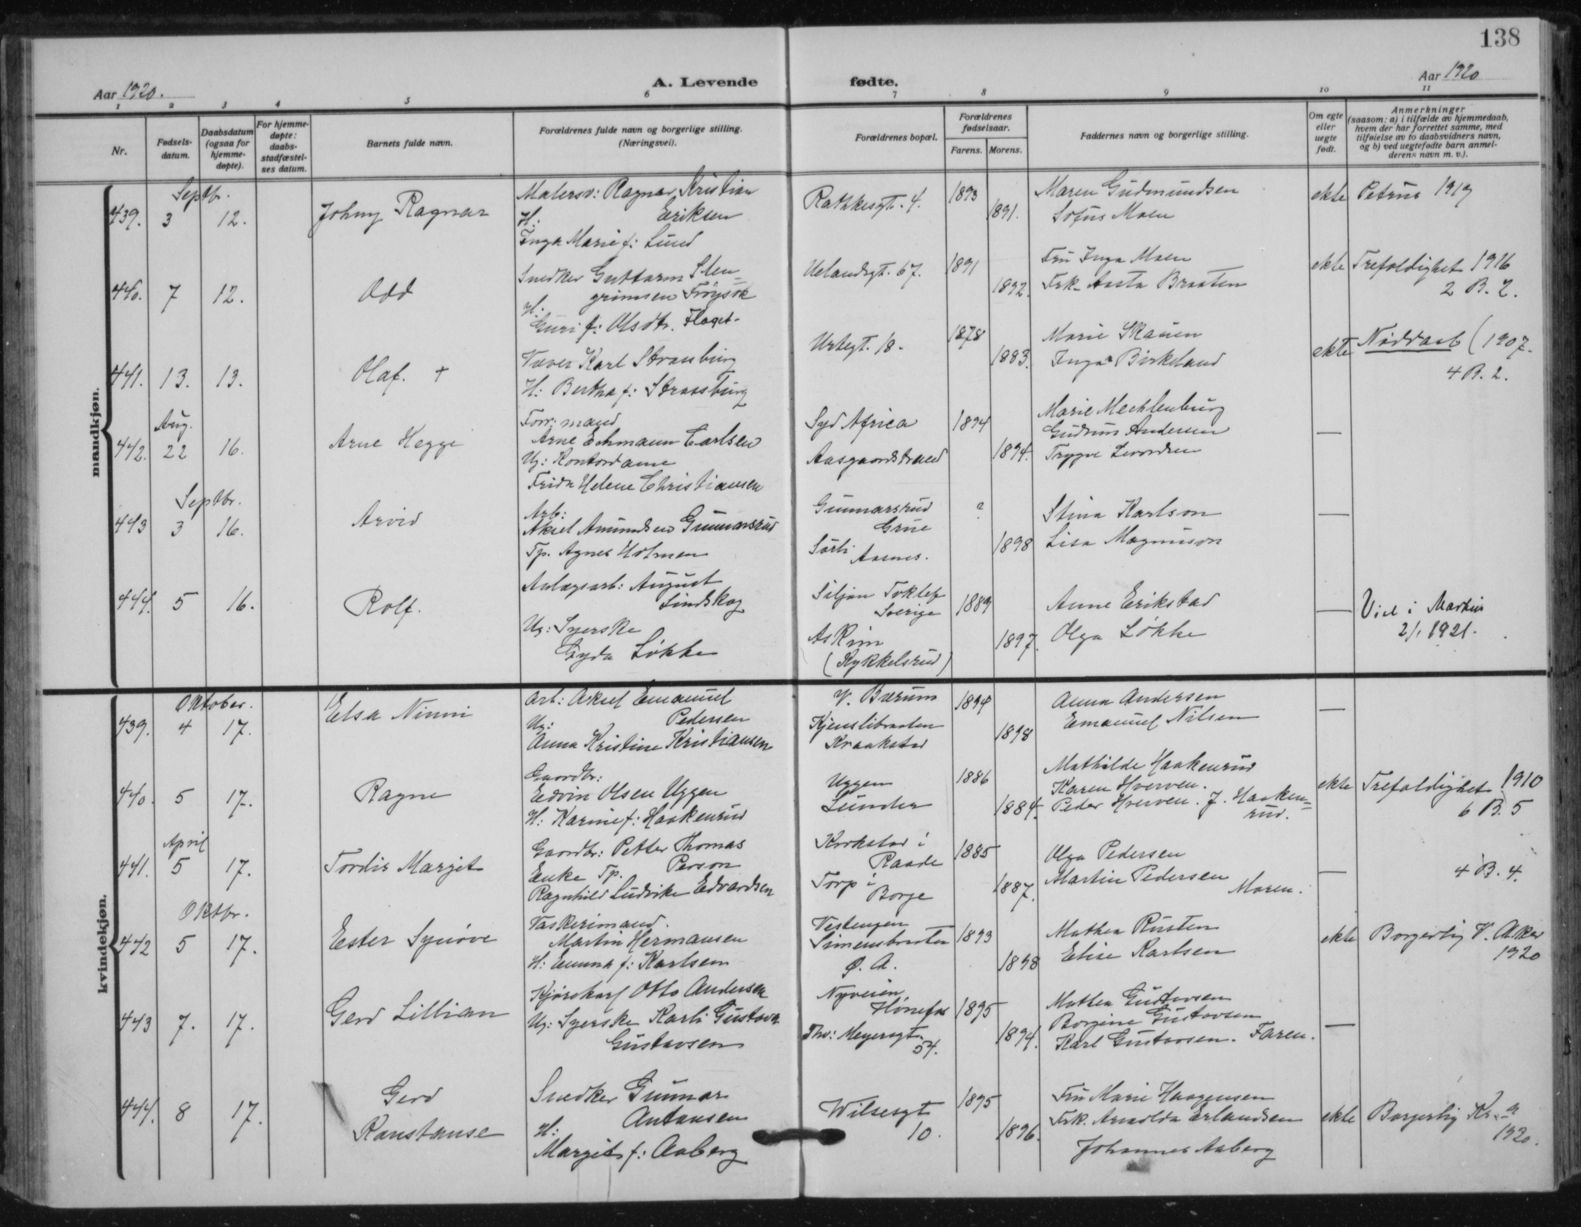 138
Aar 1920.
A. Levende fødte.
Aar 1920
1 2 3 4 5 6 7 8 9 10 11
Nr.
Fødsels-
datum.
Daabsdatum
(ogsaa for
hjemme-
døpte).
For hjemme-
døpte:
daabs-
stadfæstel-
ses datum.
Barnets fulde navn.
Forældrenes fulde navn og borgerlige stilling.
(Næringsvei).
Forældrenes bopæl.
Forældrenes
fødselsaar.
Farens. Morens.
Faddernes navn og borgerlige stilling.
Om egte
eller
uegte
født.
Anmerkninger
(saasom: a) i tilfælde av hjemmedaab,
hvem der har forrettet samme, med
tilføielse av to daabsvidners navn,
og b) ved uegtefødte barn anmel-
derens navn m. v.).
mandkjøn.
Septbr.
439. 3 12. Johny Ragnar
Malersv: Ragnar Kristian
H: Eriksen
Inga Marie f: Lund
Rathkesgt. 4.
1893
1891.
Maren Gudmundsen
Sofus Moen
ekte Petrus 1919
440. 7 12. Odd
Snedker Guttorm Sten-
grimsen Frøysok
H:
Guri f: Olsdtr. Flaget.
Uelandsgt. 67.
1891
1892.
Fru Inga Moen
Frk. Aasta Braaten
ekte Trefoldighet 1916
2 B. 2.
441. 13. 13. Olaf. +
Væver Karl Strasburg
H: Bertha f: Strassburg
Urtegt. 18.
1878
1883.
Marie Skauen
Inga Birkeland
ekte Nøddaab (1907.
4 B. 2.
Aug.
442. 22 16. Arne Hegge
Forr: mand
Arne Echmann Carlsen
Ug: Kontordame
Frida Helene Christiansen
Syd Africa
Aasgaardstrand
1894
1894.
Marie Mechlenburg
Gudrun Andersen
Trygve
—
Septbr.
443 3 16. Arvid
Arb:
Aksel Amundsen Gunnarsrud
Tp. Agnes Holmen
Gunnarsrud
Grue
Sørli
Aasnes.
?
1898
Stina Karlson
Lisa Magnuson
—
444. 5 16. Rolf.
Anlægsarb: August
Lindskog
Ug: Syerske
Gyda Løkke
Siljan
Sverige
Askim
(Kykkelsrud)
1889
1897.
Anne Erikstad
Olga Løkke
—
Viel i Markus
2/1 1921.
kvindekjøn.
Oktober.
439. 4 17. Elsa Ninni
Arb: Aksel Emanuel
Pedersen
Ug:
Anna Kristine Kristiansen
V. Bærum
Kjenslibraaten
Kraakstad
1894
1898
Anna Andersen
Emanuel Nilsen
—
440. 5 17. Ragne
Gaardbr:
Edvin Olsen Uggen
H: Karine f: Haakenrud
Uggen
Lunder
1886
1884.
Mathilde Haakenrud
Karen Hverven.
Peder Hverven. J. Haaken-
rud.
ekte Trefoldighet 1910
6 B. 5
April
441. 5 17. Tordis Margit
Gaardbr: Petter Thomas
Person
Enke Tp.
Ragnhild Ludvike Edvardsen
Krokstad i
Raade
Torp i
Borge
1885
1887.
Olga Pedersen
Martin Pedersen
Moren.
—
4 B. 4.
Oktbr.
442 5 17. Ester Synøve
Vaskerimand.
Martin Hermansen
H: Emma f: Karlsen
Vestengen
Simensbraaten
Ø. A.
1893
1898
Mathea Rusten
Elise Karlsen
ekte Borgerlig V. Aker
1920
443 7. 17. Gerd Lillian
Kjørekarl Otto Andersen
Ug: Syerske Karli Gustava
Gustavsen
Nyveien
Hønefos
Ths: Meyersgt.
54.
1895
1894.
Mathea Gustavsen
Borgine Gustavsen
Karl Gustavsen. Faren.
—
444. 8 17. Gerd
Konstanse
Snedker Gunnar
Antonsen
H:
Margit f: Aaberg
Wilsesgt
10.
1895
1896.
Fru Marie Haagensen
Frk. Arnolda Erlandsen
Johannes Aaberg
ekte Borgerlig Kr.a
1920.